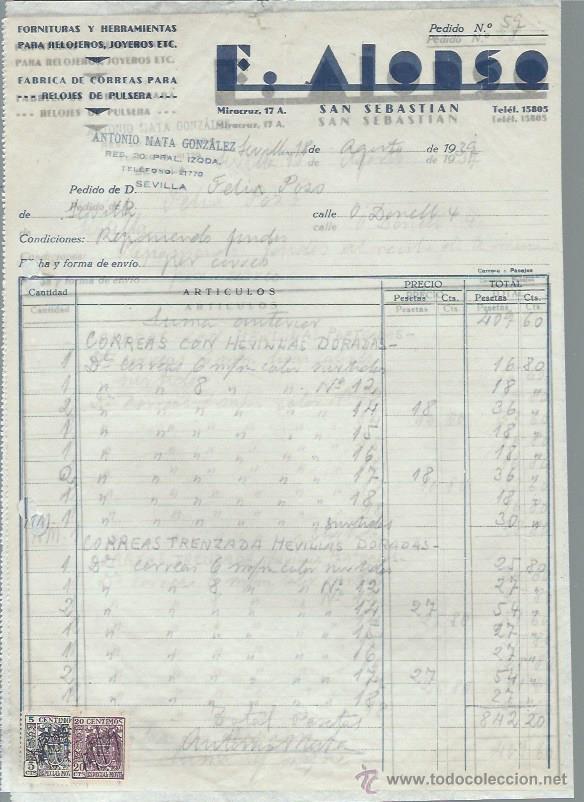 FORNITURAS Y HERRAMIENTAS
PARA RELOJEROS, JOYEROS ETC.
FABRICA DE CORREAS PARA
--- RELOJES DE PULSERA ---
Pedido N.º 59
F. Alonso
Miracruz, 17 A. SAN SEBASTIAN Teléf. 15805
ANTONIO MATA GONZÁLEZ
RES, 20 PRAL. IZQDA.
TELÉFONO 21770
SEVILLA
Sevilla 18 de Agosto de 1939
Pedido de D. Felix Pozo
de Sevilla calle O Donell 4
Condiciones: Reponiendo fondos
F ha y forma de envío por correo
Cantidad ARTICULOS PRECIO TOTAL
Pesetas Cts. Pesetas Cts.
Suma anterior 409 60
CORREAS CON HEVILLAS DORADAS-
1 Dª correas 6 m/m color surtidos 16 80
1 " " 8 " " Nº 12 18 "
2 " " " " " 14 18 36 "
1 " " " " " 15 18 "
1 " " " " " 16 18 "
2 " " " " " 17 18 36 "
1 " " " " " 18 18 "
1 " " " " " surtidos 30 "
CORREAS TRENZADA HEVILLAS DORADAS-
1 Dª correas 6 m/m color surtidos 25 80
1 " " 8 " " Nº 12 27 "
2 " " " " " 14 27 54 "
1 " " " " " 15 27 "
1 " " " " " 16 27 "
2 " " " " " 17 27 54 "
1 " " " " " 18 27 "
Total Pesetas 842 20
Antonio Mata
5 CENTIMOS
5 CTS ESPECIAL MOVIL
20 CENTIMOS
20 CTS ESPECIAL MOVIL
www.todocoleccion.net